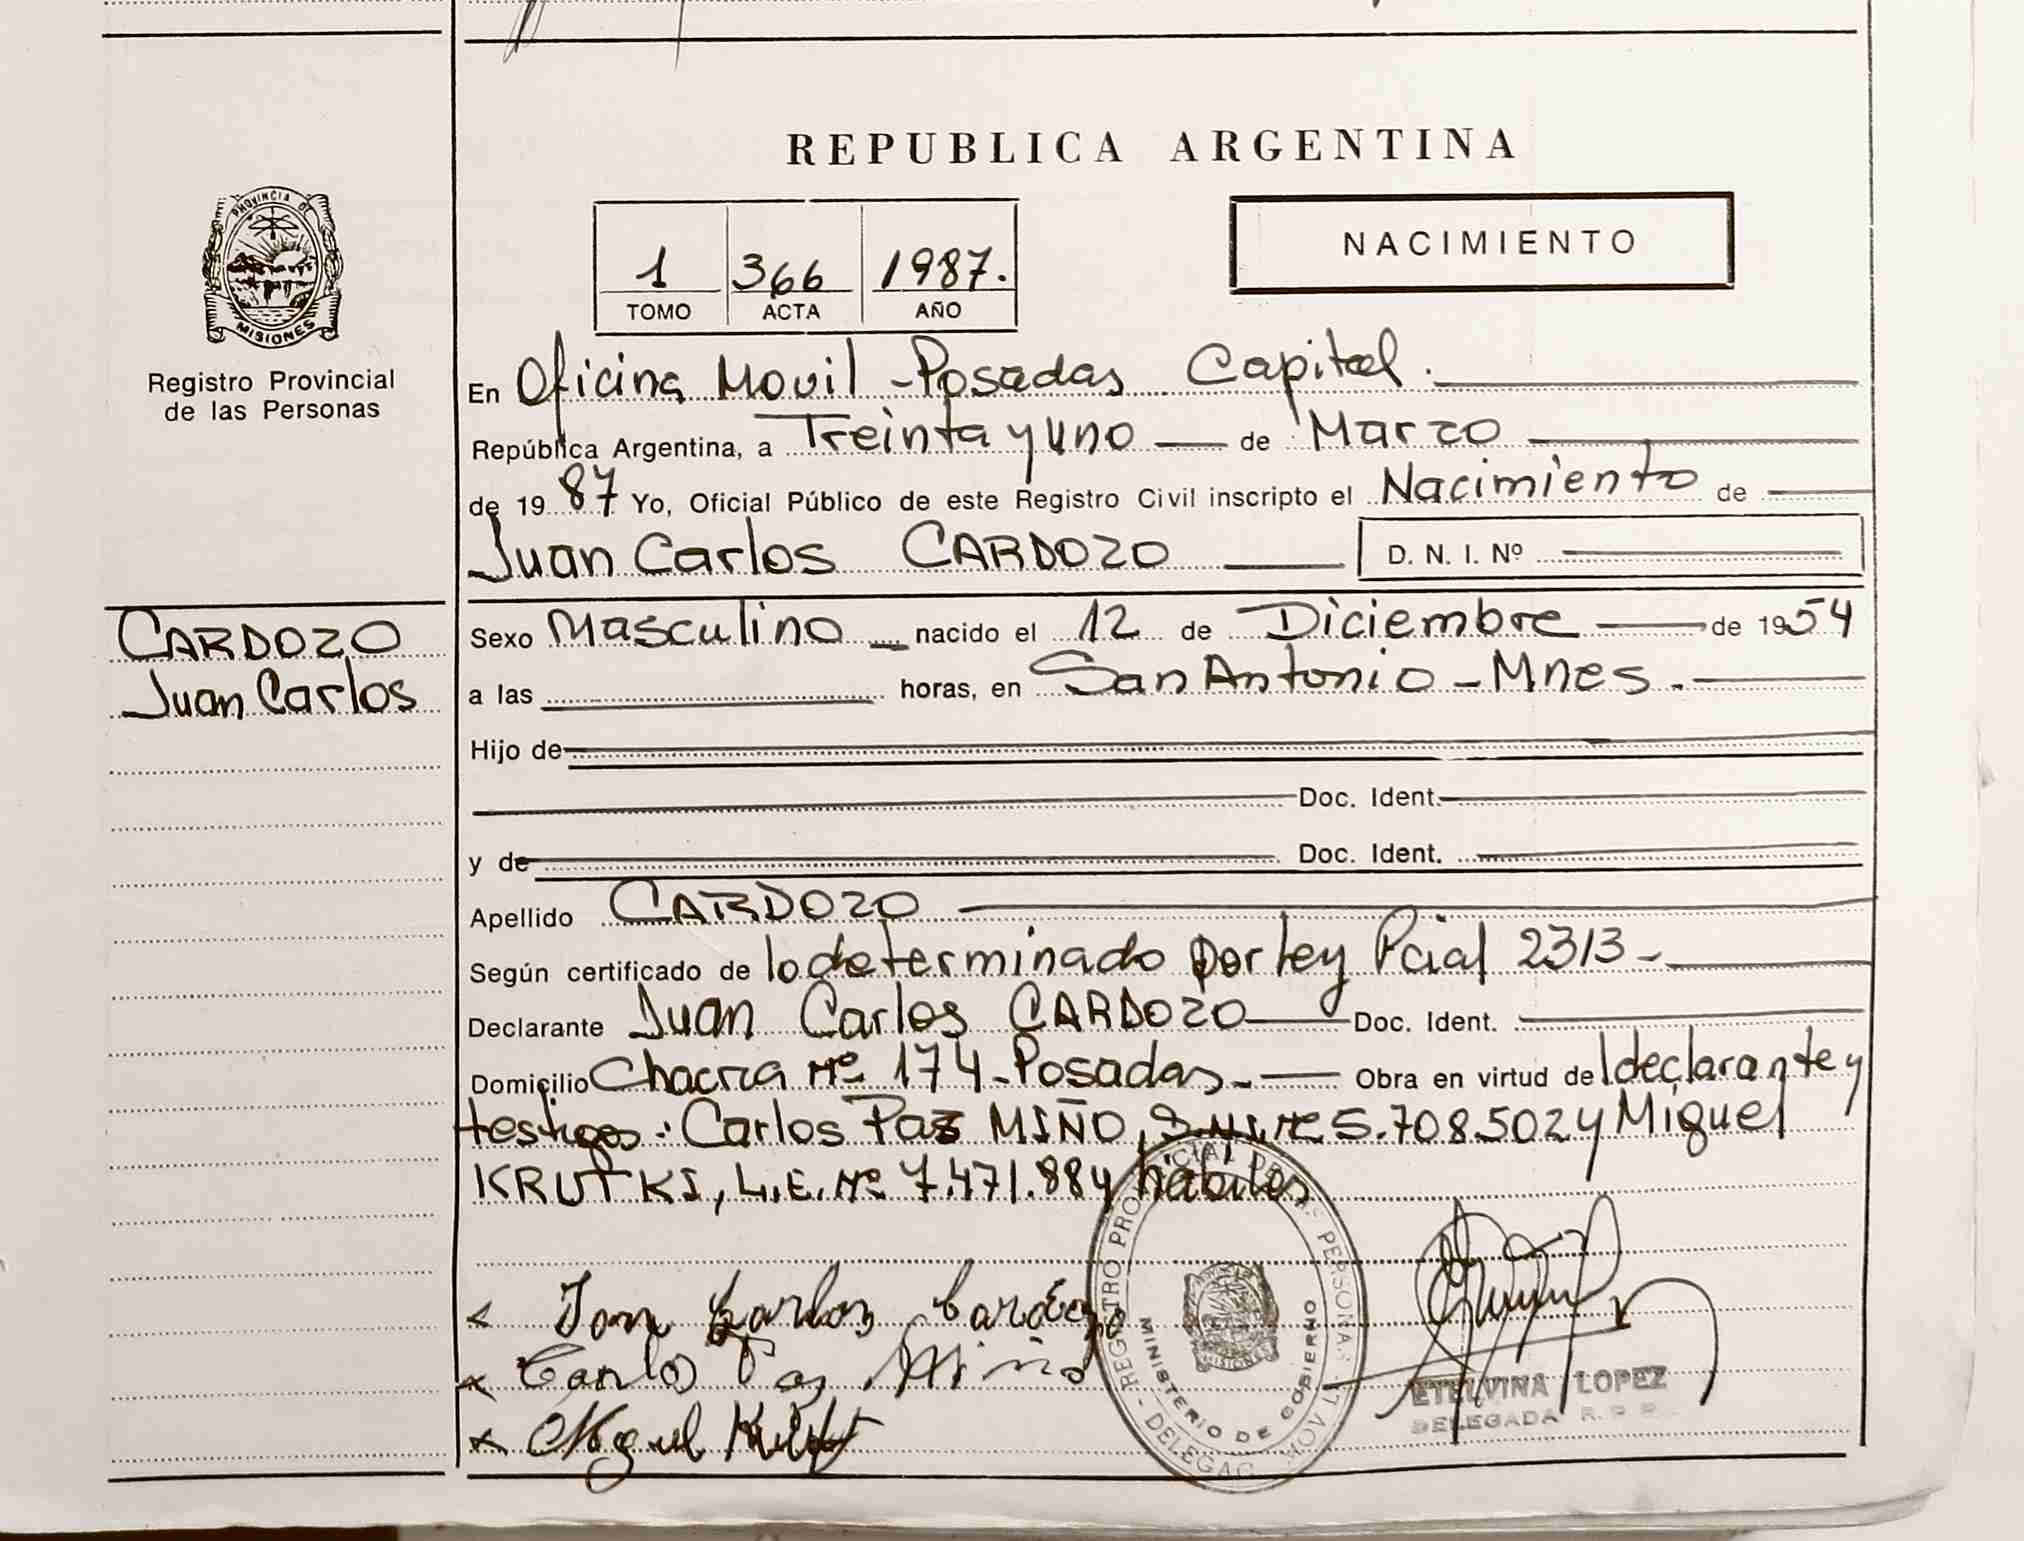 REPUBLICA ARGENTINA
PROVINCIA DE
MISIONES
Registro Provincial
de las Personas
NACIMIENTO
1 366 1987.
TOMO ACTA AÑO
En Oficina Movil - Posadas Capital.
República Argentina, a Treinta y uno de Marzo
de 1987 Yo, Oficial Público de este Registro Civil inscripto el Nacimiento de
Juan Carlos CARDOZO D. N. I. Nº
CARDOZO
Juan Carlos
Sexo Masculino nacido el 12 de Diciembre de 1954
a las horas, en San Antonio - Mnes.
Hijo de
Doc. Ident.
y de Doc. Ident.
Apellido CARDOZO
Según certificado de lo determinado por ley Pcial 2313 -
Declarante Juan Carlos CARDOZO Doc. Ident.
Domicilio Chacra Nº 174 - Posadas - Obra en virtud del declarante y
testigos: Carlos Paz MIÑO, Nº 5.708.502 y Miguel
KRUTKI, L.E. Nº 7.471.884 hábiles
Juan Carlos Cardozo
Carlos Paz Miño
Miguel
REGISTRO PROVINCIAL DE LAS PERSONAS
MINISTERIO DE GOBIERNO
MISIONES
DELEGAC MOVIL
ETELVINA LOPEZ
DELEGADA R. P. P.